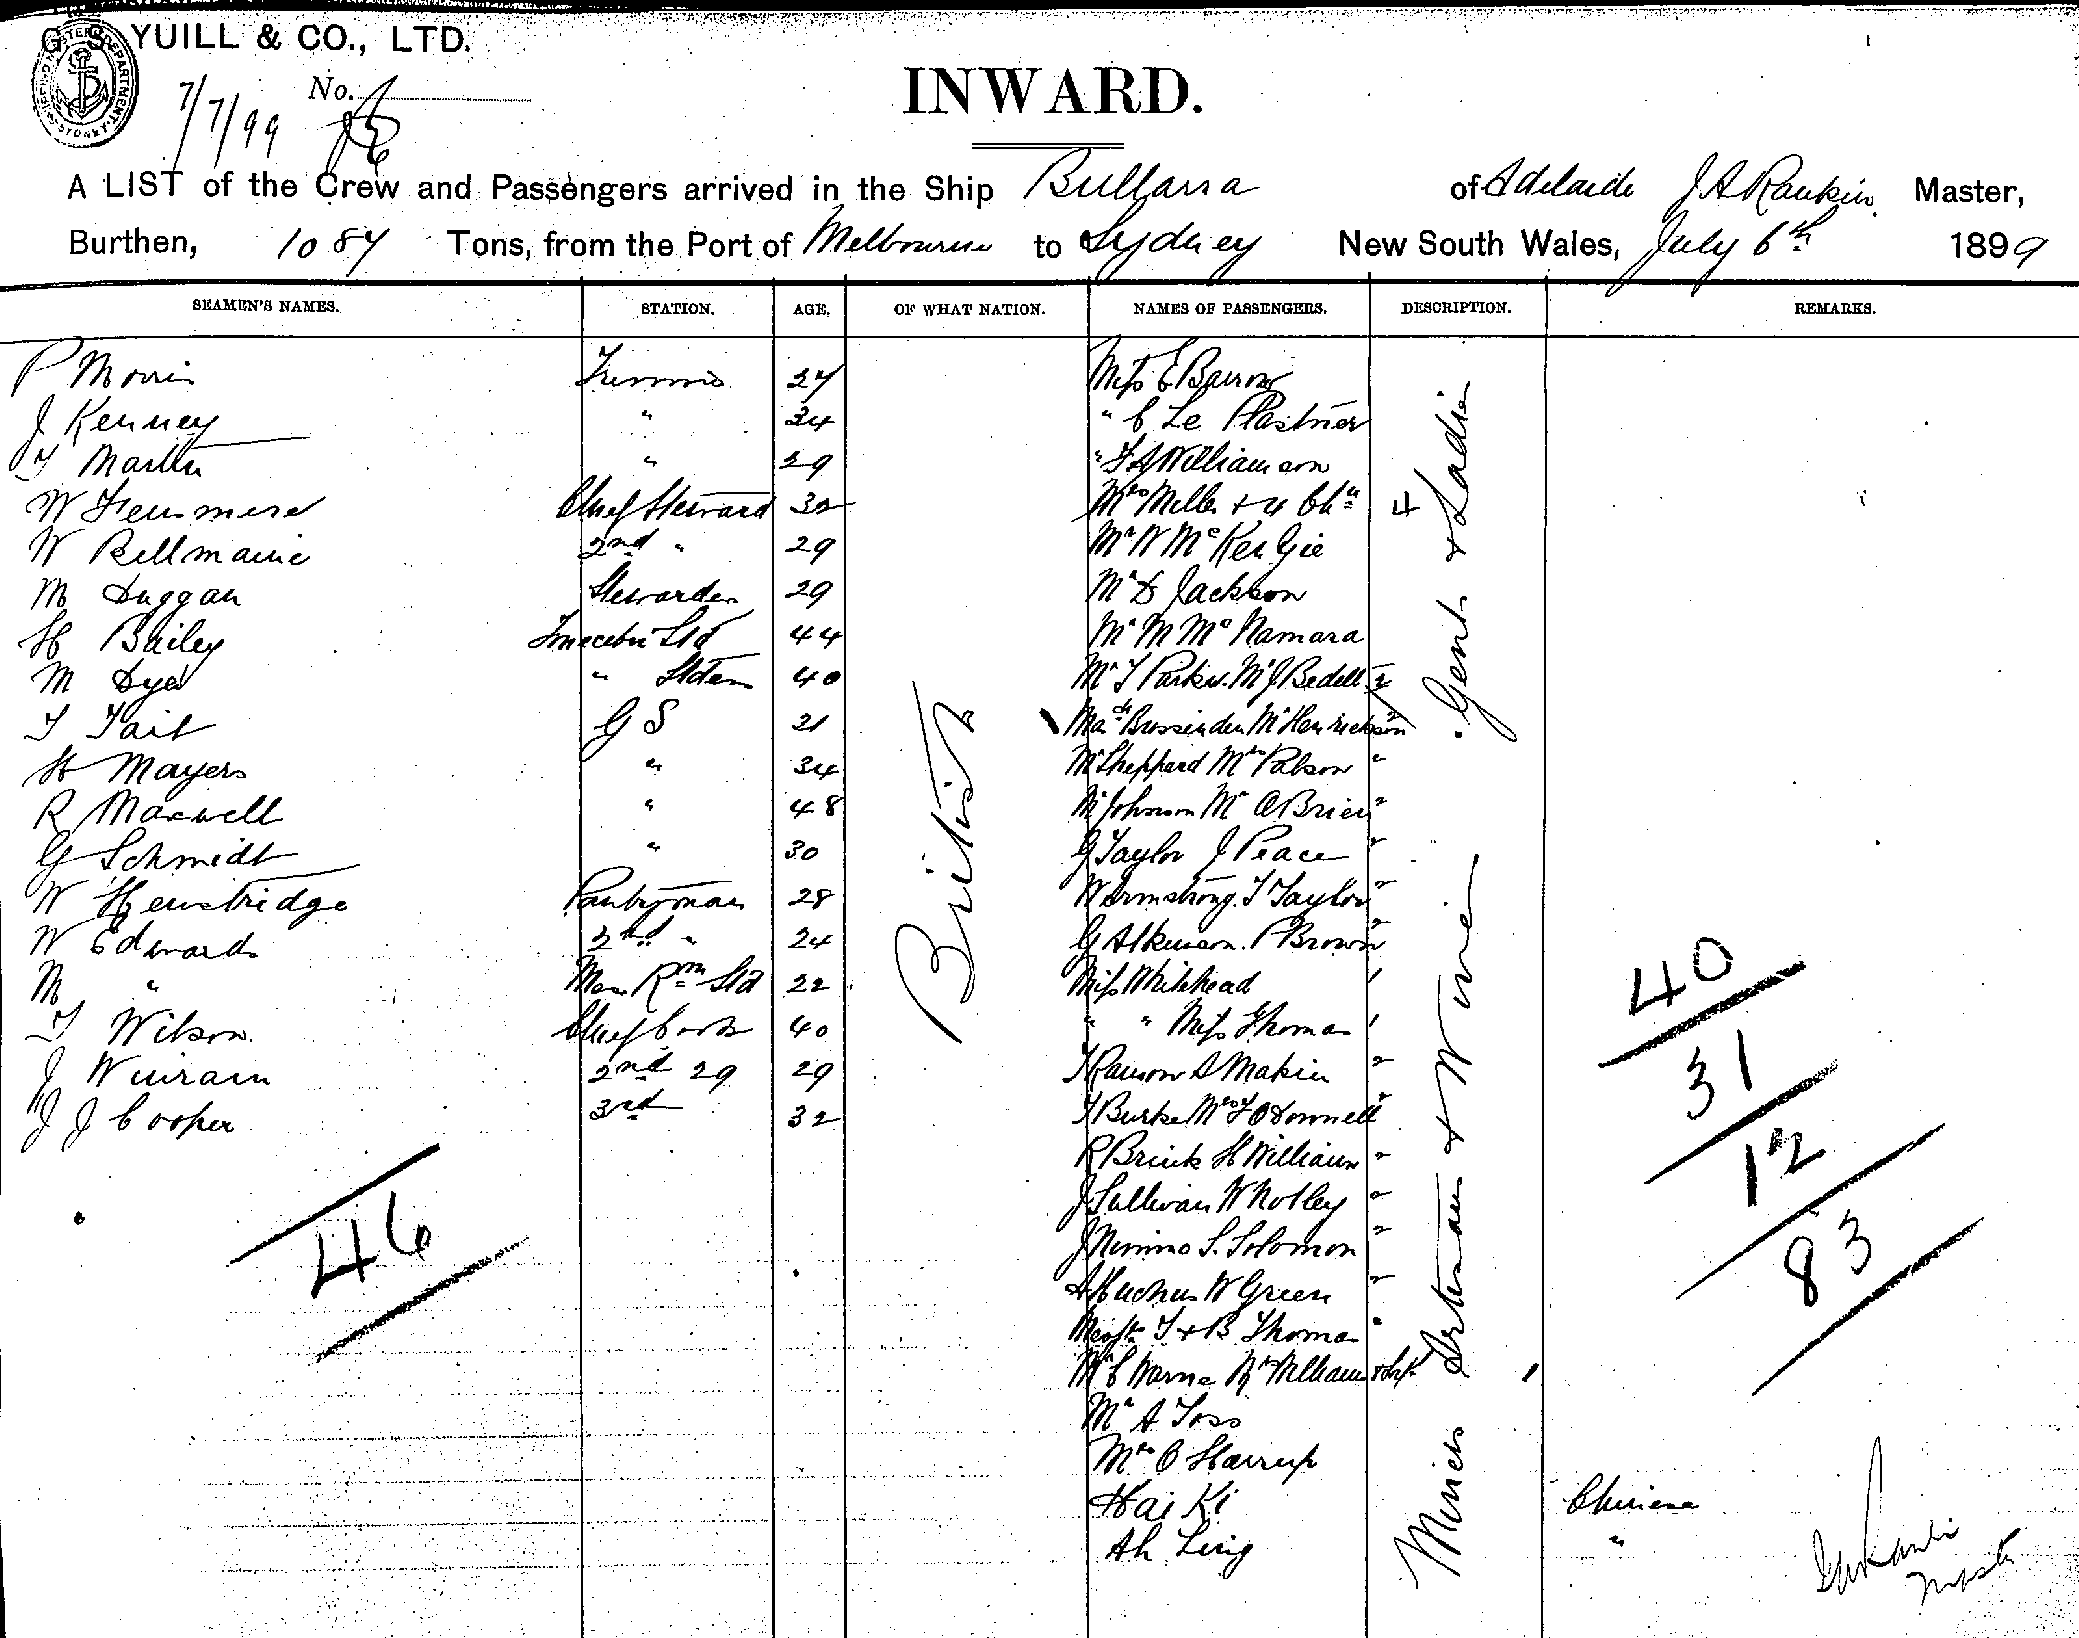 G. S. YUILL & CO., LTD.
7/7/99 No.
INWARD.
A LIST of the Crew and Passengers arrived in the Ship Bullarra of Adelaide J A Rankin Master,
Burthen, 1084 Tons, from the Port of Melbourne to Sydney New South Wales, July 6th 1899
SEAMEN'S NAMES. STATION. AGE. OF WHAT NATION. NAMES OF PASSENGERS. DESCRIPTION. REMARKS.
P Morris 27 Miss E Barrow
J Kenney " 34 " C Le Plastrier
T Martin " 29 " Williamson
W Chief Steward 30 Mrs Miller + 4 Chn 4
W Bellmaine 2nd " 29 Mr W McKenzie
M Duggan Stewardess 29 Mr D Jackson
H Bailey Std 44 Mr M McNamara
M Dye " Stdess 40 Mr T Parker Mr J Bedell 2
T Tait G S 21
H Mayers " 34 Mr Sheppard "
R Maxwell " 48 Mr Johnson Mr O'Brien "
G Schmidt " 30 G Taylor J Peace "
W Hewstridge Pantryman 28 W Armstrong. T Taylor "
W Edwards 2nd " 24 G Atkinson. P Brown "
M " Mess Rm Std 22 Miss Whitehead 1
T Wilson Chief Cook 40 " " Miss Thomas 1
J 2nd 29 29 A Makin "
J J Cooper 3rd 32 T Burke Mrs O'Donnell "
R Brink H Williams "
J Sullivan W Notley "
J Nimmo S. Solomon "
A Hughes W Green "
T + B Thomas "
Mr C Warne
Mr A Foss
Mrs O Harrup
Hai Ki Chinese
Ah Ling "
British
Gents + Ladies
Artesans + Wives
Miners
46
40
31
12
83
J A Rankin
Master